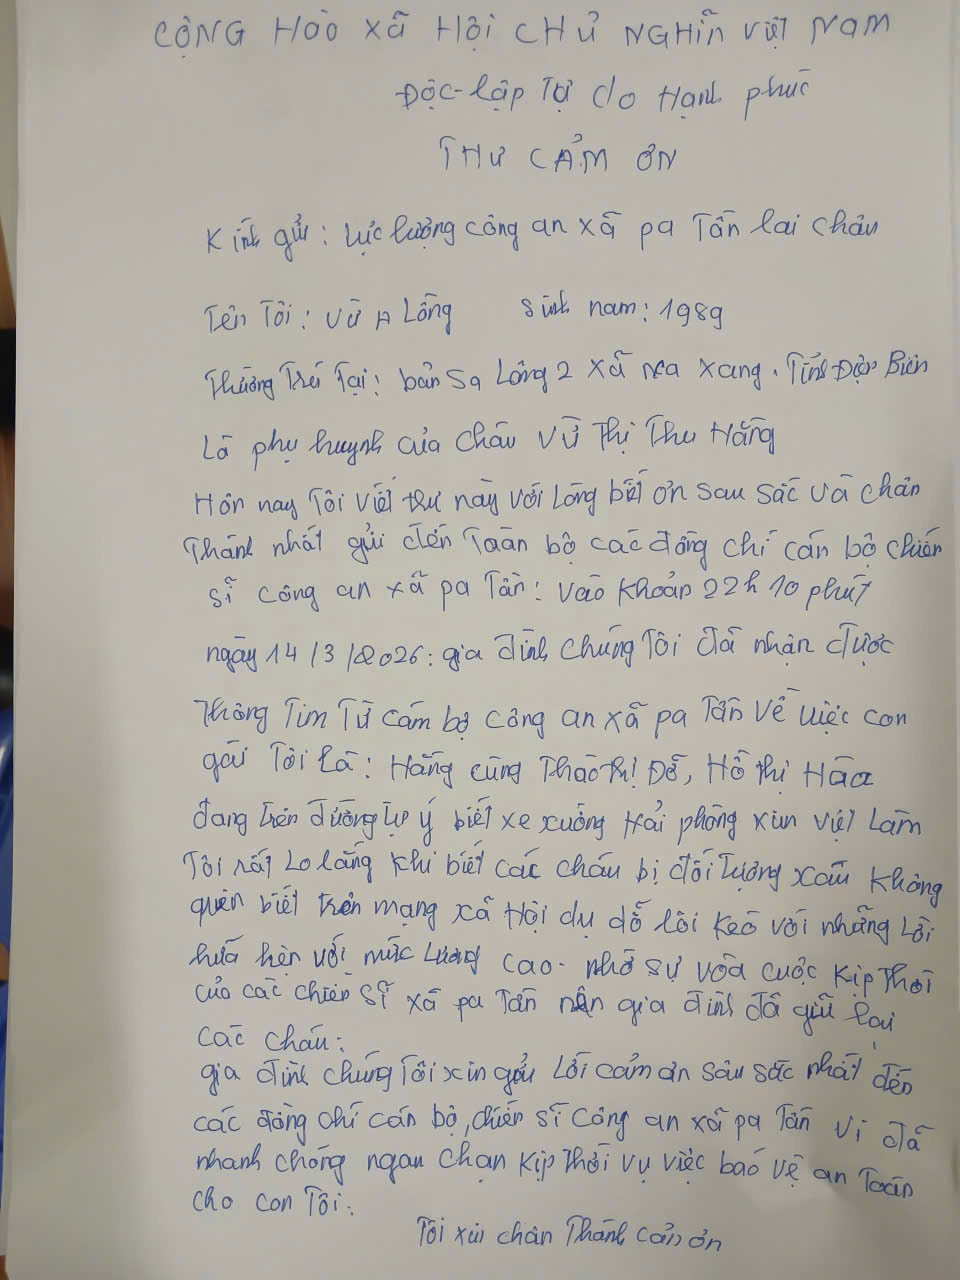 CỘNG HÒO XÃ HỘI CHỦ NGHĨN VIỆT NAM
Độc-lập Tự do Hạnh phúc
THƯ CẢM ƠN
Kính gửi: Lực lượng công an xã pa Tần lai châu
Tên Tôi: Vừ A Lồng sinh nam: 1989
Thường Trú Tại: bản Sa Lông 2 xã Ma Xang. Tỉnh Điện Biên
Là phụ huynh của cháu Vừ Thị Thu Hằng
Hôn nay Tôi viết thư này với Lòng biết ơn sau sắc và chân
Thành nhất gửi đến Toàn bộ các đồng chí cán bộ chiến
sĩ công an xã pa Tần: vào khoản 22h 10 phút
ngày 14/3/2026: gia đình chúng Tôi đã nhận được
Thông Tim Từ cám bộ công an xã pa Tần Về việc con
gái Tôi Là: Hằng cùng Thào Thị Đỗ, Hồ Thị Hòa
đang trên đường tự ý biết xe xuống Hải phòng xin việt Làm
Tôi rất Lo lắng khi biết các cháu bị đối Tượng xấu không
quên biết trên mạng xã Hội dụ dỗ lôi kéo với những Lời
hứa hẹn với mức Lương cao. nhờ sự vòa cuộc kịp Thời
của các chiến sĩ xã pa Tần nên gia đình đã giữ lại
các cháu:
gia đình chúng Tôi xin gửi Lời cảm ơn sâu sắc nhất đến
các đồng chí cán bộ, chiến sĩ công an xã pa Tần vì đã
nhanh chóng ngan chạn kịp Thời vụ việc baó vệ an Toàn
cho con Tôi.
Tôi xin chân Thành cản ơn